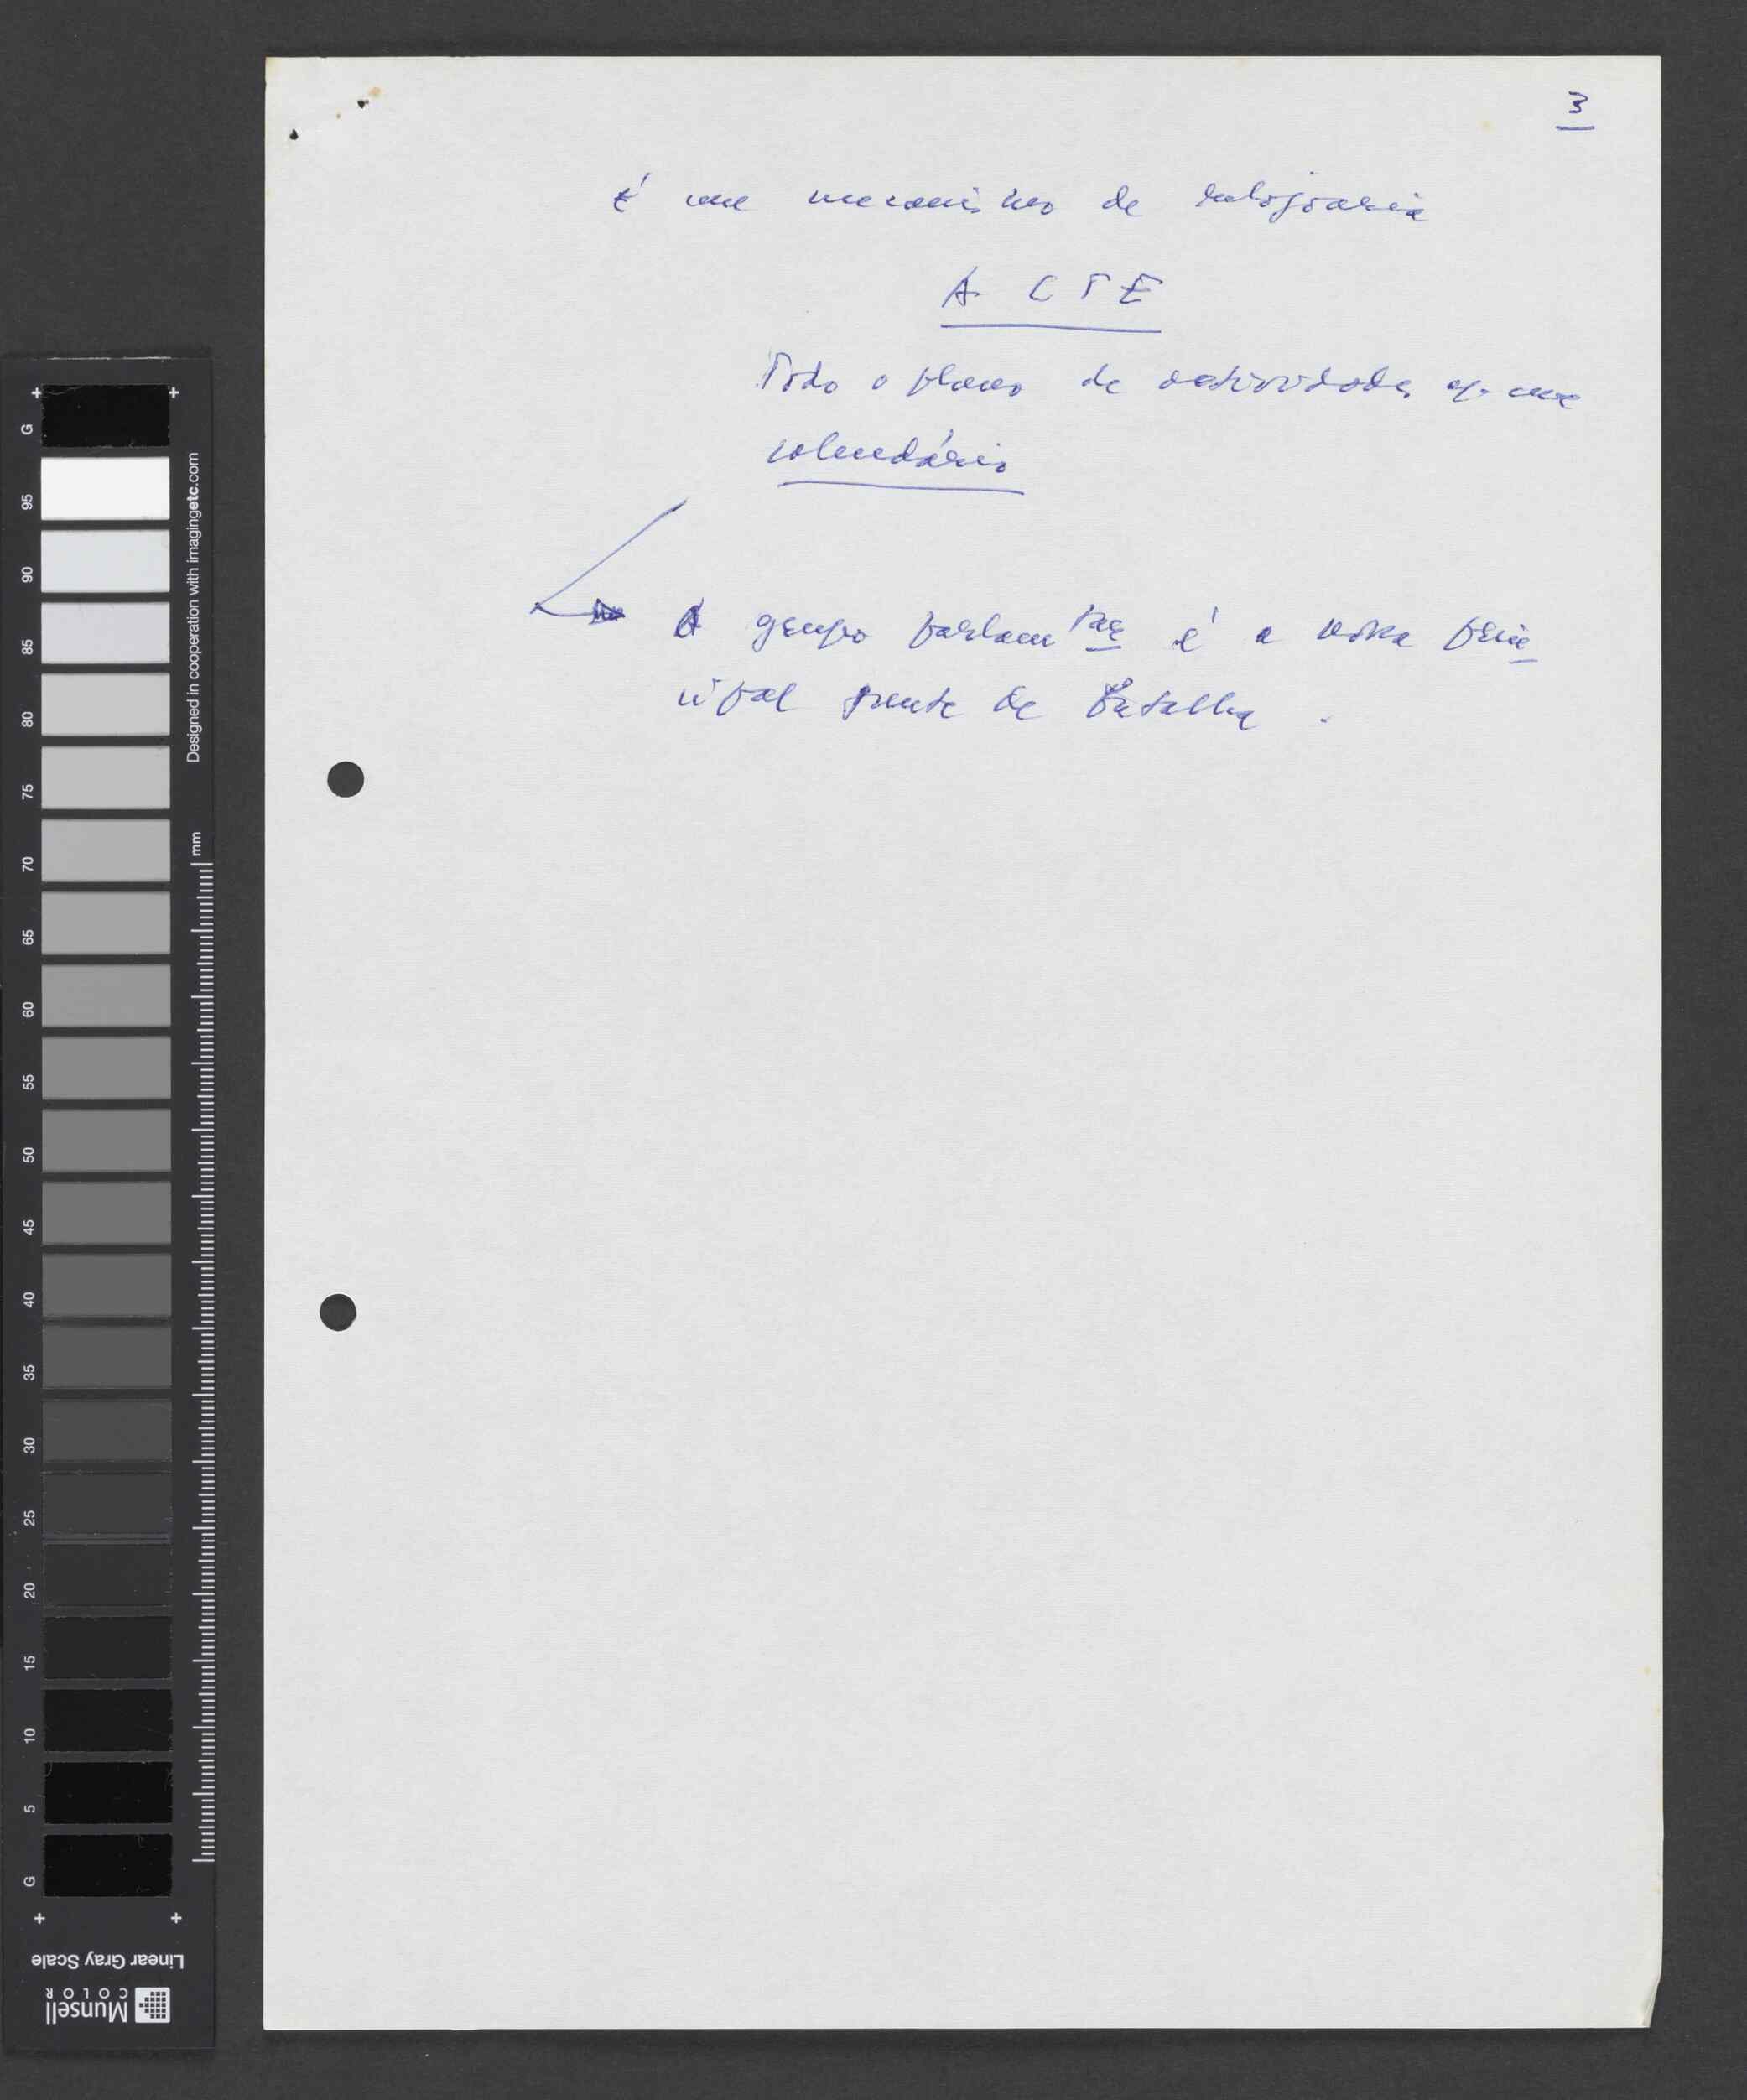 3
É um mecanismo de
A CTE
Todo o plano de actividades q. um
calendário
O grupo parlamtar é a nossa prin
cipal frente de batalha .
G
95
90
85
80
75
70
65
60
55
50
45
40
35
30
25
20
15
10
5
G
Designed in cooperation with imagingetc.com
mm
Linear Gray Scale
Munsell
COLOR